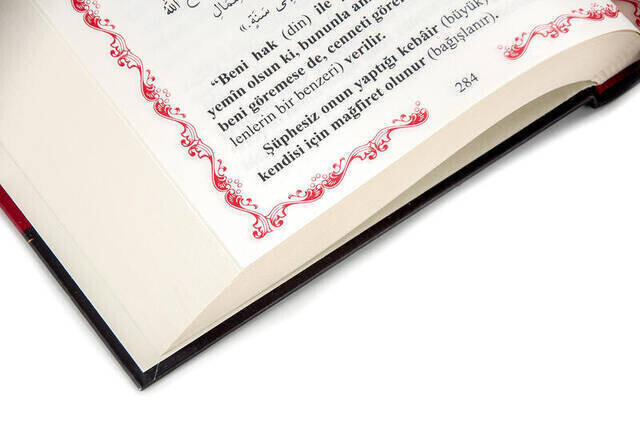 الله
سَنَةٍ.»
“Beni hak (din) ile
yemîn olsun ki, bununla
beni göremese de, cenneti
lenlerin bir benzeri) verilir.
Şüphesiz onun yaptığı kebâir (büyük)
kendisi için mağfiret olunur (bağışlanır).
284